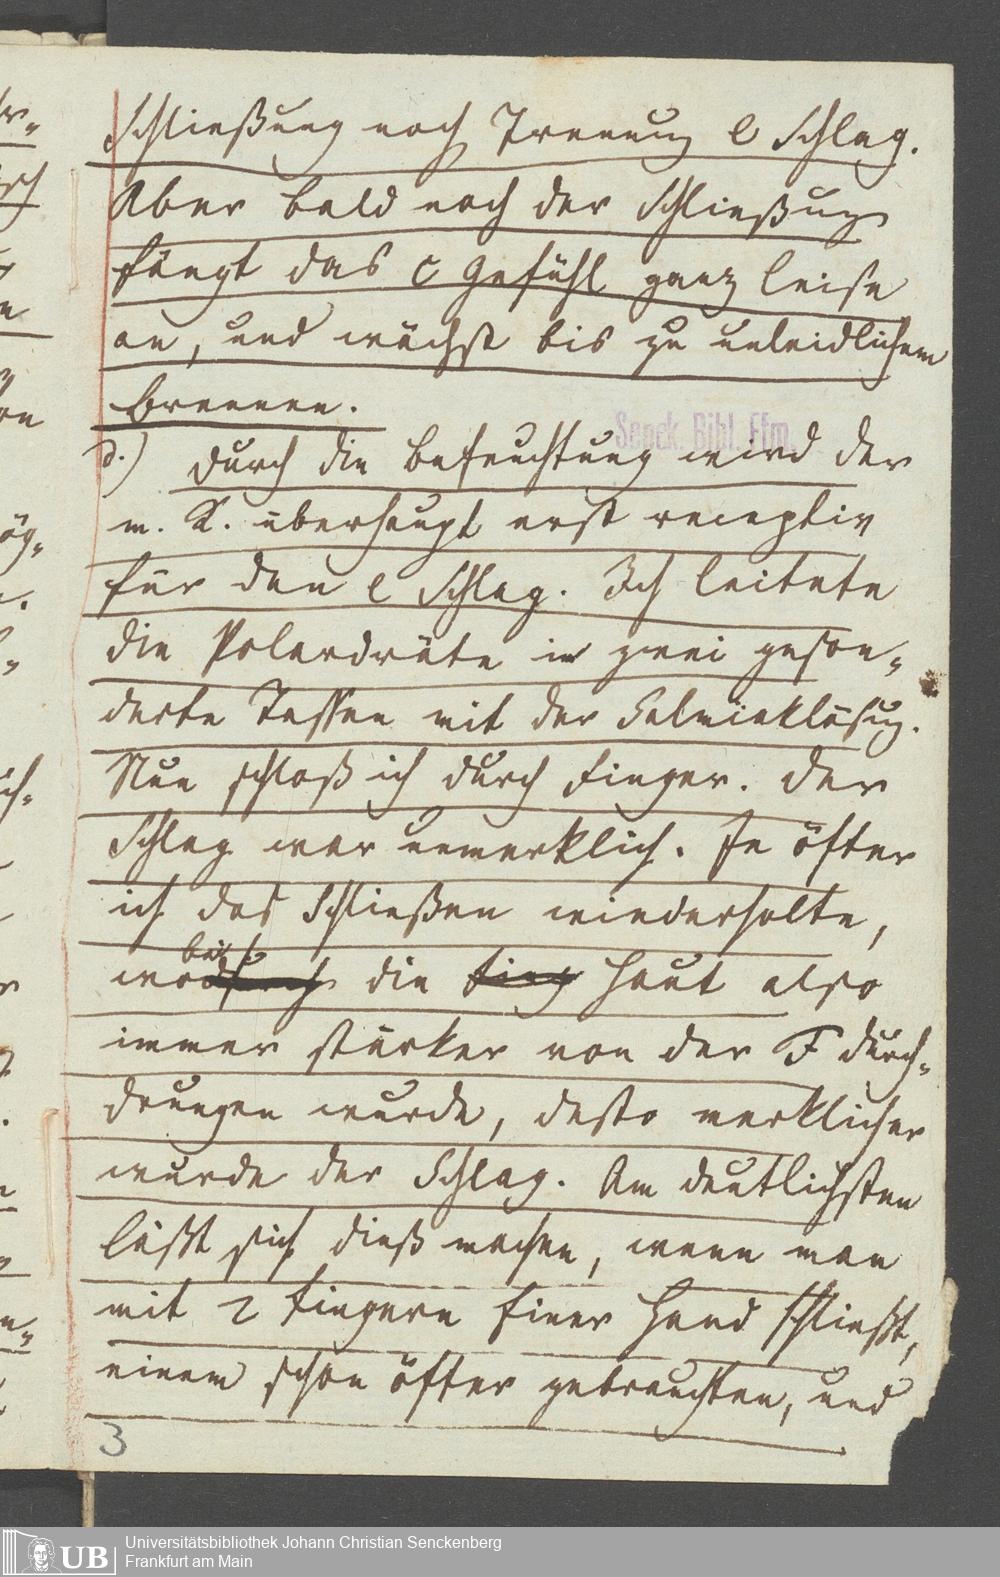 Schließung noch Trennung e Schlag.
Aber bald nach der Schließung
fängt das c Gefühl ganz leise
an, und wächst bis zu unleidlichem
Brennen.
d.) Durch die Befeuchtung wird der
m. K. überhaupt erst receptiv
für den e Schlag. Ich leitete
die Polardräte in zwei geson-
derte Tassen mit der Salmiaklösung.
Nun schloß ich durch Finger. Der
Schlag war unmerklich. Je öfter
ich das Schließen wiederholte,
wobei die Haut also
immer stärker von der F durch-
drungen wurde, desto merklicher
wurde der Schlag. Am deutlichsten
läßt sich dieß machen, wenn man
mit 2 Fingern Einer Hand schließt,
einem schon öfter gebrauchten, und
3
Senck. Bibl. Ffm.
UB
Universitätsbibliothek Johann Christian Senckenberg
Frankfurt am Main